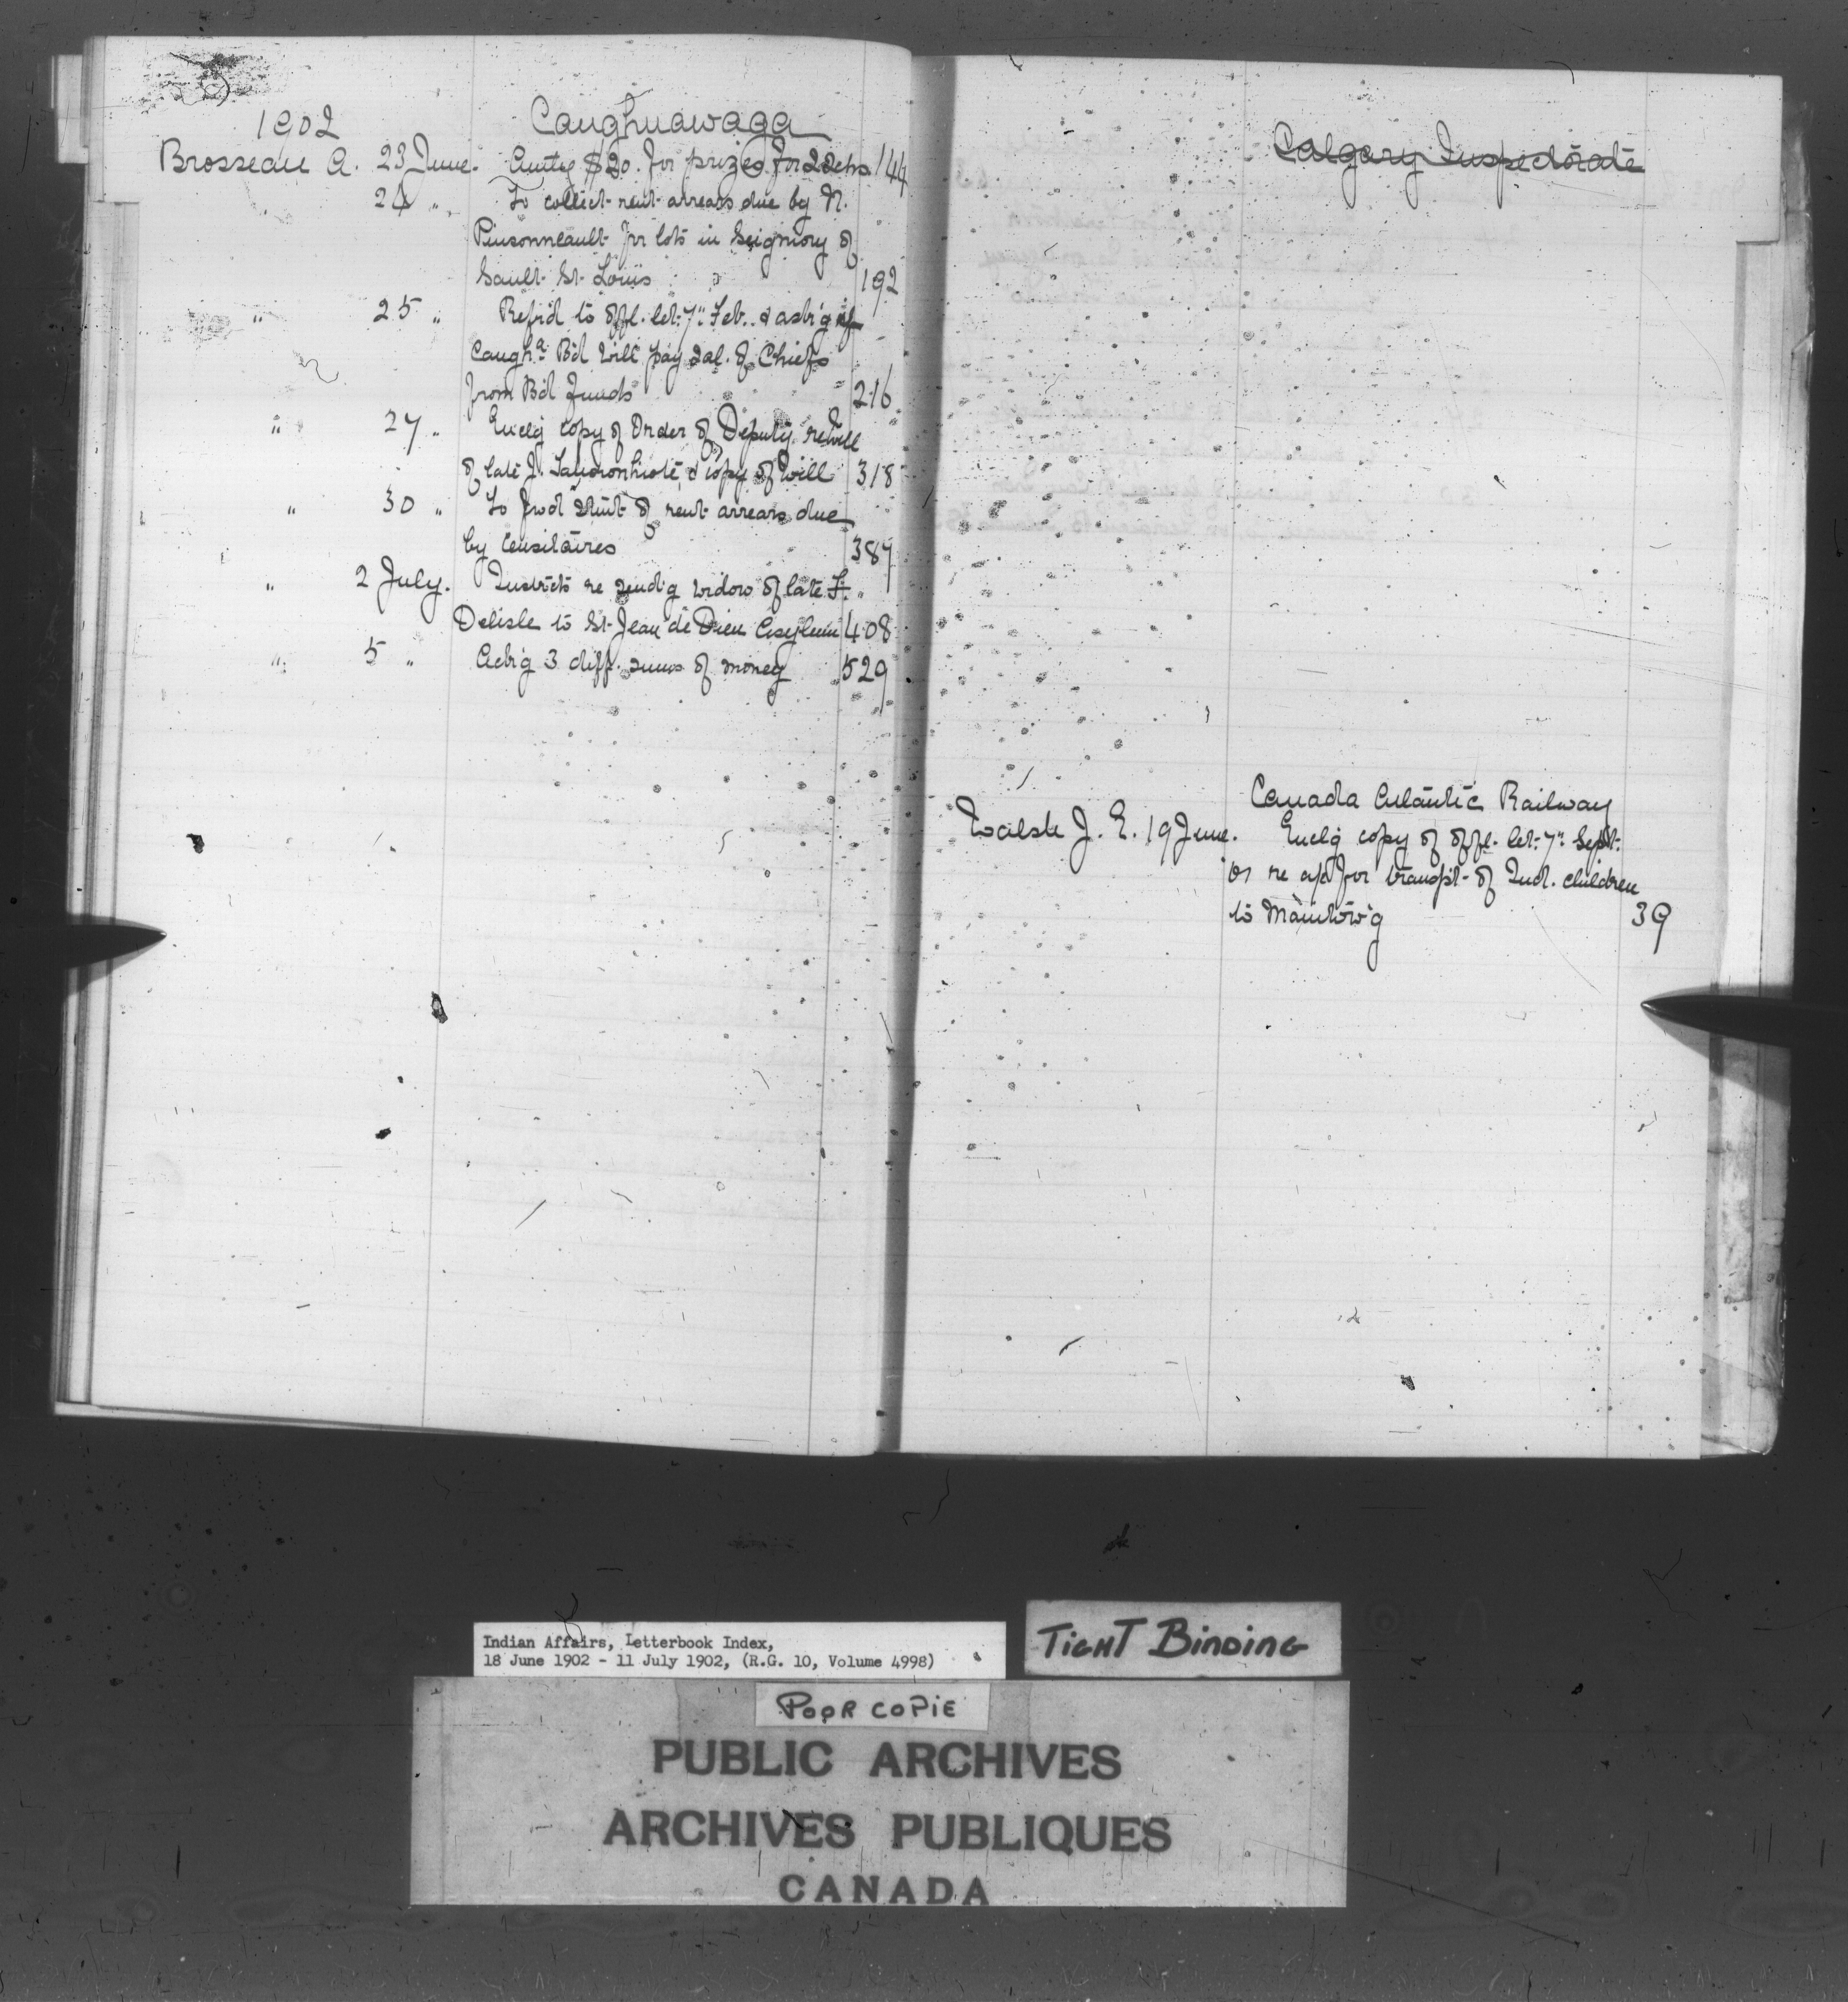 1902 Caughnawaga
Brosseau A. 23 June. Autg $20. for prizes for 144
24 " To collect rent arrears due by N.
Pinsonneault for lots in Seigniory of
Sault St. Louis 192
" 25 " Ref'd to offl. let. 7" Feb. & ask'g if
Caugh.a B'd will pay sal. of Chiefs
from B'd Funds 216
" 27 " Encl'g copy of Order of Deputy re will
of late J. & copy of will 318
" 30 " To fwd stmt of rent arrears due
by Censitaires 387
" 2 July. Instructs re send'g widow of late F.
Delisle to St. Jean de Dieu Asylum 408
" 5 " Ack'g 3 diff. sums of money 529
Calgary Inspectorate
Canada Atlantic Railway
Walsh J. E. 19 June. Encl'g copy of offl. let. 7" Sept.
'01 re a/c for transp't of Ind. children
to Manitow'g 39
Indian Affairs, Letterbook Index,
18 June 1902 - 11 July 1902, (R.G. 10, Volume 4998)
TIGHT BINDING
POOR COPIE
PUBLIC ARCHIVES
ARCHIVES PUBLIQUES
CANADA